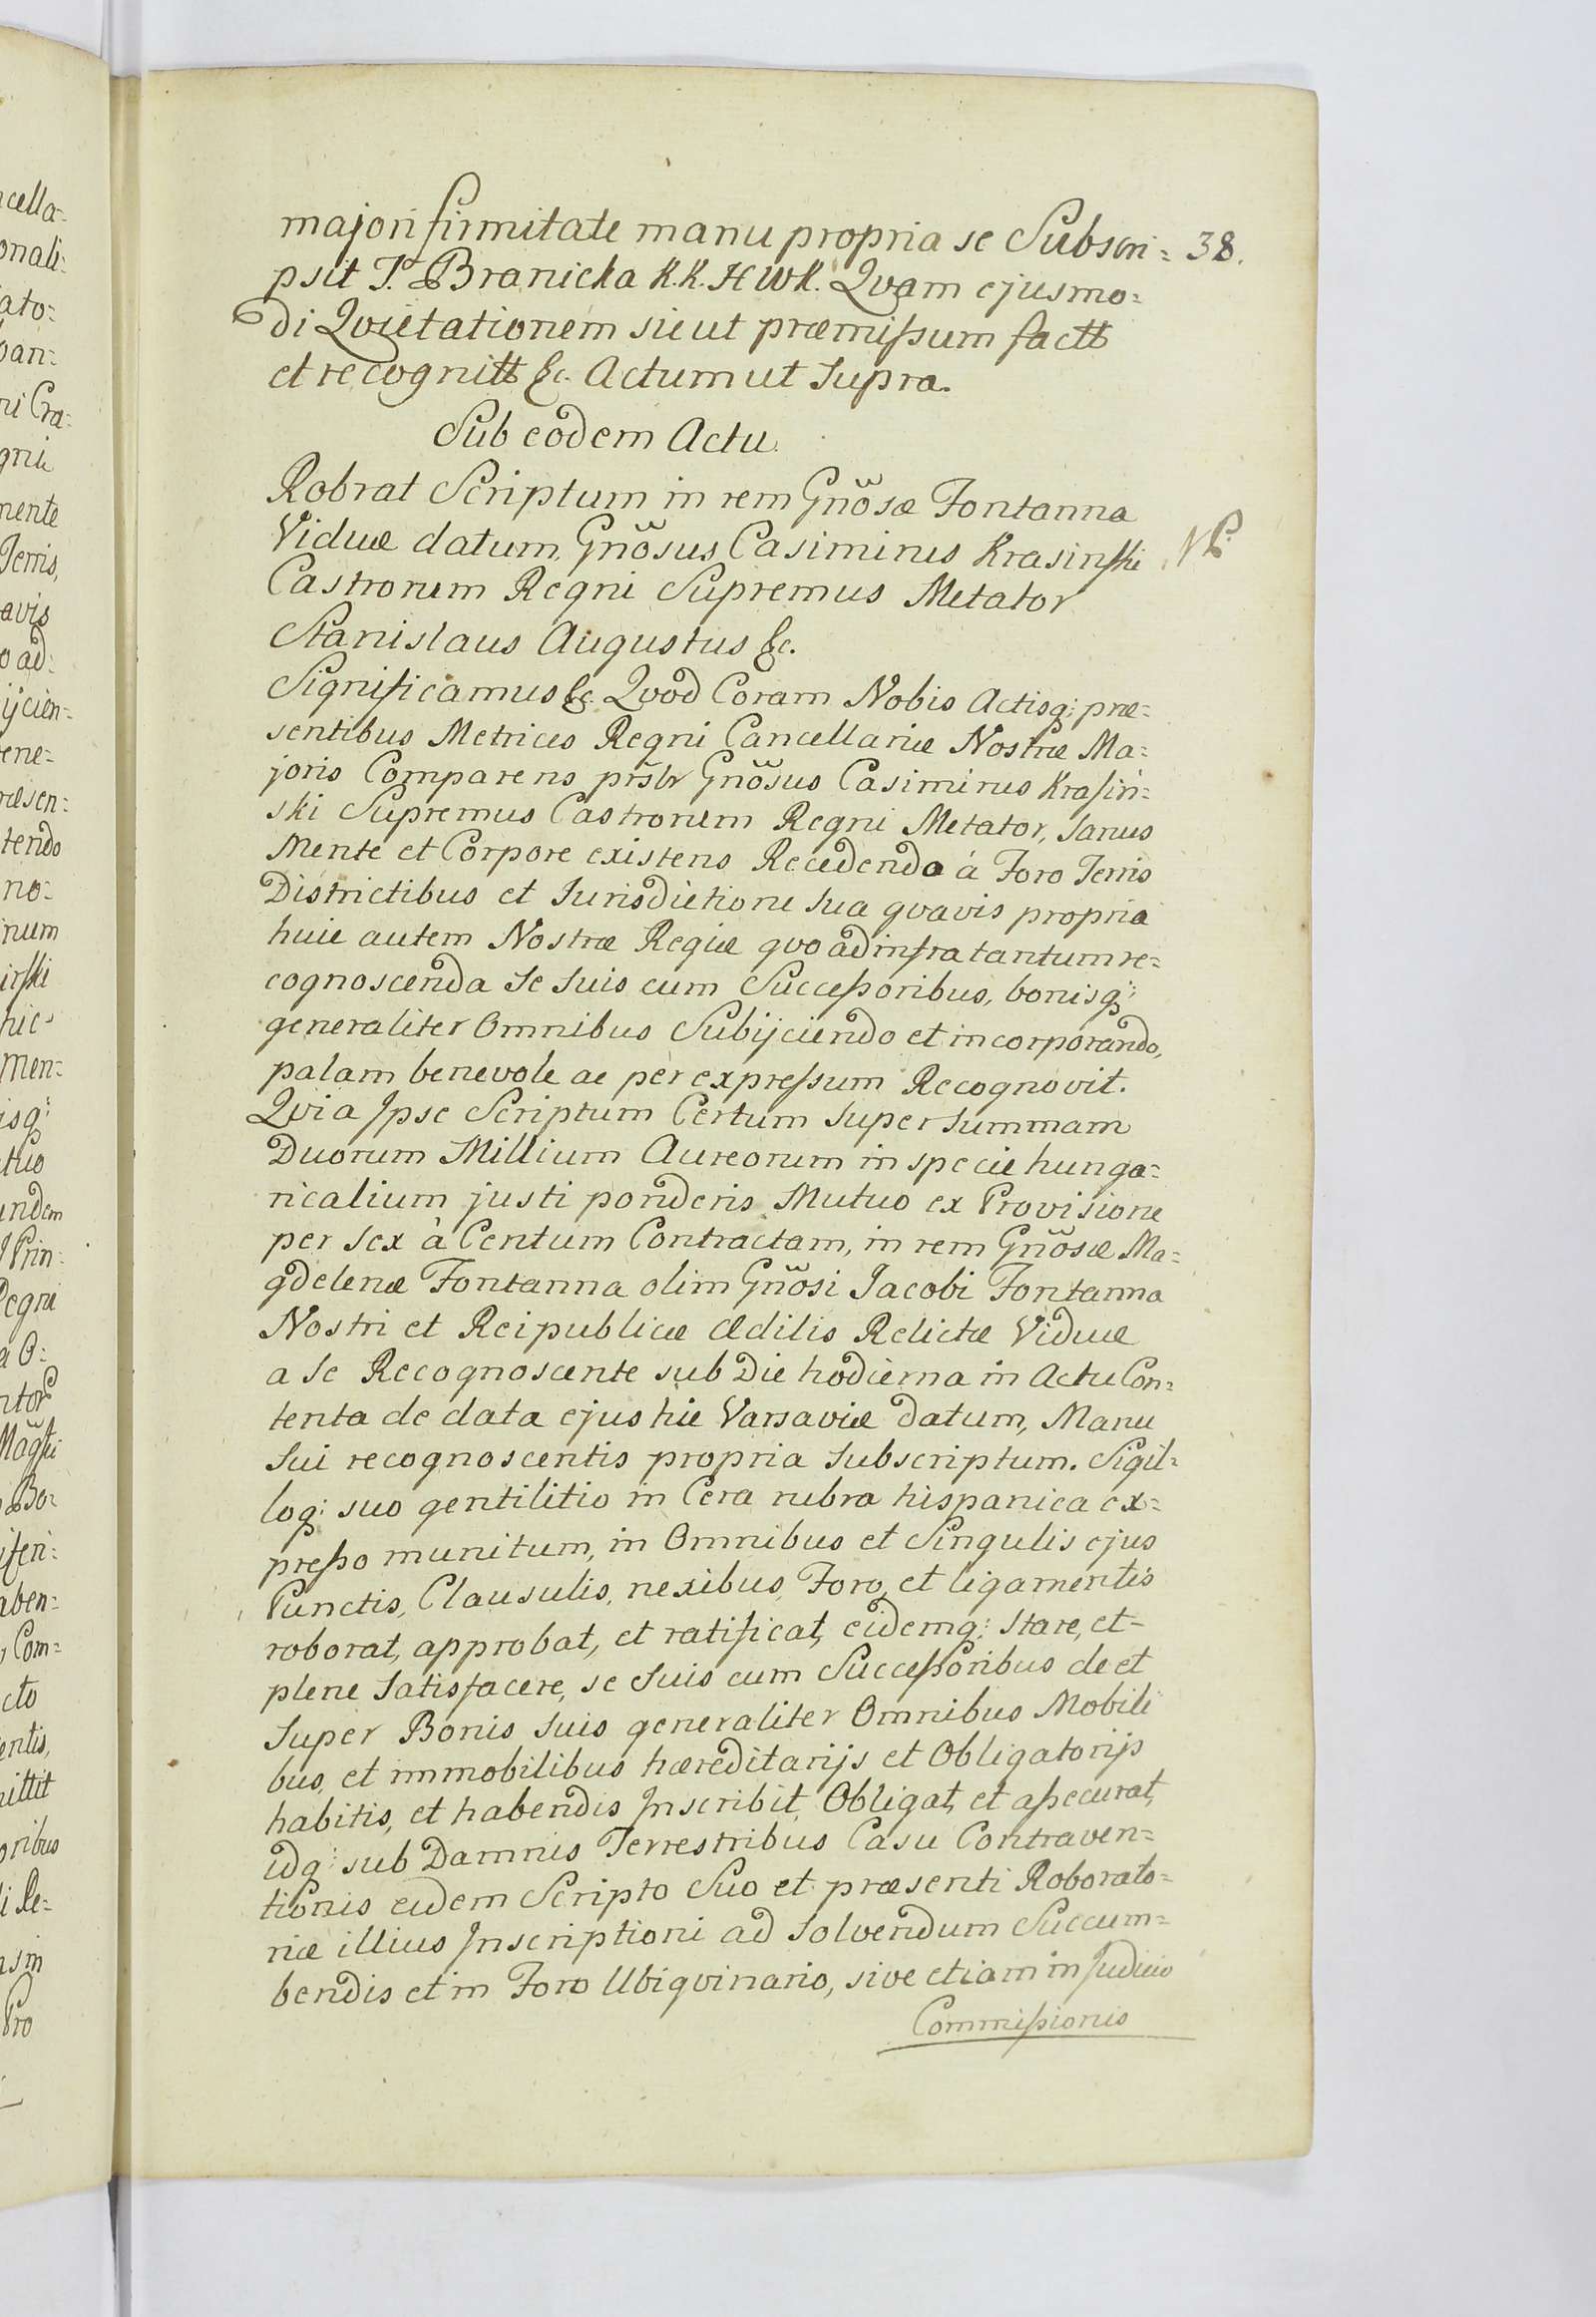 majori firmitate manu propria se Subscri= 38.
psit J. Branicka K. K. H W K. Qvam ejusmo=
di Qvietationem sicut præmißum factt
et recognitt &c. Actum ut Supra.
Sub eodem Actu.
Robrat Scriptum in rem Gnõsæ Fontanna
Viduæ datum, Gnõsus Casimirus Krasinski
Castrorum Regni Supremus Metator
Stanislaus Augustus &c.
Significamus &c. Qvod Coram Nobis Actisq; præ=
sentibus Metrices Regni Cancellariæ Nostræ Ma=
joris Comparens prs̃br Gnõsus Casimirus Krasin=
ski Supremus Castrorum Regni Metator, Sanus
Mente et Corpore existens Recedendo à Foro Terris
Districtibus et Jurisdictione sua qvavis propria
huic autem Nostræ Regiæ qvo ad infra tantum re=
cognoscenda se suis cum Succeßoribus, bonisq;
generaliter Omnibus Subijciendo et incorporando,
palam benevole ac per expreßum Recognovit.
Qvia Ipse Scriptum Certum super summam
Duorum Millium Aureorum in specie hunga=
ricalium justi ponderis Mutuo ex Provisione
per sex à Centum Contractam, in rem Gnõsæ Ma=
gdelenæ Fontanna olim Gnõsi Jacobi Fontanna
Nostri et Reipublicæ Ædilis Relictæ Viduæ
a se Recognoscente sub Die hodierna in Actu Con=
tenta de data ejus hic Varsaviæ datum, Manu
sui recognoscentis propria subscriptum. Sigil=
loq; suo gentilitio in Cera rubra hispanica ex=
preßo munitum, in Omnibus et Singulis ejus
Punctis, Clausulis, nexibus, Foro, et ligamentis
roborat, approbat, et ratificat, eidemq; stare, et
plene satisfacere, se suis cum Succeßoribus de et
super Bonis suis generaliter Omnibus Mobili
bus, et immobilibus hæreditarijs et Obligatorijs
habitis, et habendis Inscribit, Obligat, et aßecurat,
idq; sub Damnis Terrestribus Casu Contraven=
tionis eidem Scripto Suo et præsenti Roborato=
riæ illius Inscriptioni ad solvendum Succum=
bendis et in Foro Ubiqvinario, sive etiam in Judicio
Commißionis